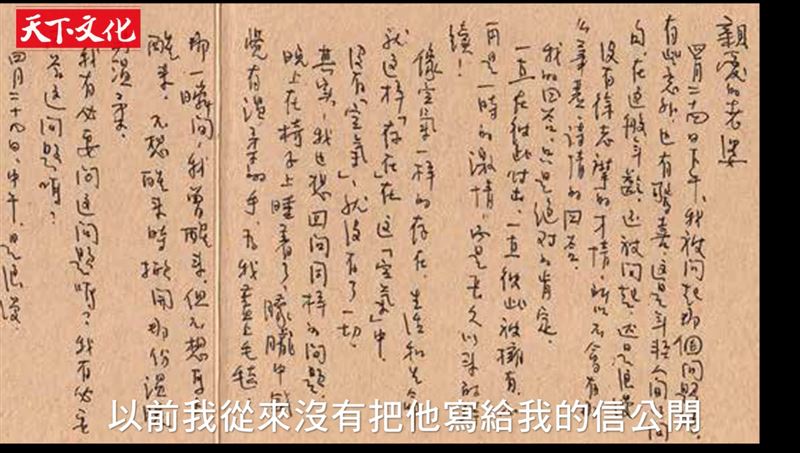 天下文化
親愛的老婆
四月二十四日下午，我被問起那個問題，
有些意外，也有驚喜，這是年輕人間的問
句，在這般年齡，還被問起，還是浪漫
沒有徐志摩的才情，所以不會有
華麗、詩情的回答
我的回答，只是絕對的肯定。
一直在彼此付出，一直彼此被擁有，
不是一時的激情，而是長久以來的
續！
像空氣一樣的存在，生活和生命
就這樣「存在」在這「空氣」中
沒有「空氣」，就沒有了一切。
其實，我也想回問同樣的問題
晚上在椅子上睡着了，朦朧中感
覺有溫柔的手，為我蓋上毛毯
那一瞬間，我曾醒來，但不想真
醒來，不想醒來時撕開那份溫
溫柔。
我有必要問這問題嗎？我有必要
答這問題嗎？
四月二十九日，中午，是浪漫。
以前我從來沒有把他寫給我的信公開